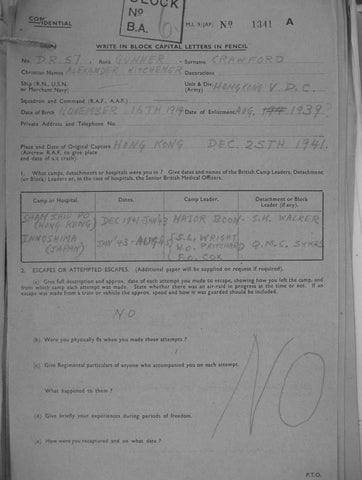 CONFIDENTIAL
BLOCK
No
B.A.
M.I. 9/JAP/ No 1341 A
WRITE IN BLOCK CAPITAL LETTERS IN PENCIL
No. D.R.57. Rank GUNNER Surname CRAWFORD
Christian Names ALEXANDER KITCHENER Decorations
Ship (R.N., U.S.N. or Merchant Navy) Unit & Div (Army) HONGKONG V.D.C.
Squadron and Command (R.A.F., A.A.F.)
Date of Birth NOVEMBER 16TH Date of Enlistment AUG. 1939
Private Address and Telephone No.
Place and Date of Original Capture HONG KONG DEC. 25TH 1941.
(Aircrew R.A.F. to give place
and date of a/c crash).
1. What camps, detachments or hospitals were you in? Give dates and names of the British Camp Leaders, Detachment
(or Block) Leaders or, in the case of hospitals, the Senior British Medical Officers.
Camp or Hospital. Dates Camp Leader. Detachment or Block Leader (if any).
SHAM SHUI PO (HONG KONG) DEC 1941-JAN '43 MAJOR BOON S.H. WALKER
INNOSHIMA (JAPAN) JAN '43 - AUG S.L. WRIGHT
W.O. PRITCHARD Q.M.S. SYKES
F.O. COX
2. ESCAPES OR ATTEMPTED ESCAPES. (Additional paper will be supplied on request if required).
(a) Give full description and approx. date of each attempt you made to escape, showing how you left the camp, and
from which camp each attempt was made. State whether there was an air-raid in progress at the time or not. If an
escape was made from a train or vehicle the approx. speed and how it was guarded should be included.
NO
(b) Were you physically fit when you made these attempts?
(c) Give Regimental particulars of anyone who accompanied you on each attempt.
What happened to them?
NO
(d) Give briefly your experiences during periods of freedom.
(e) How were you recaptured and on what date?
P.T.O.